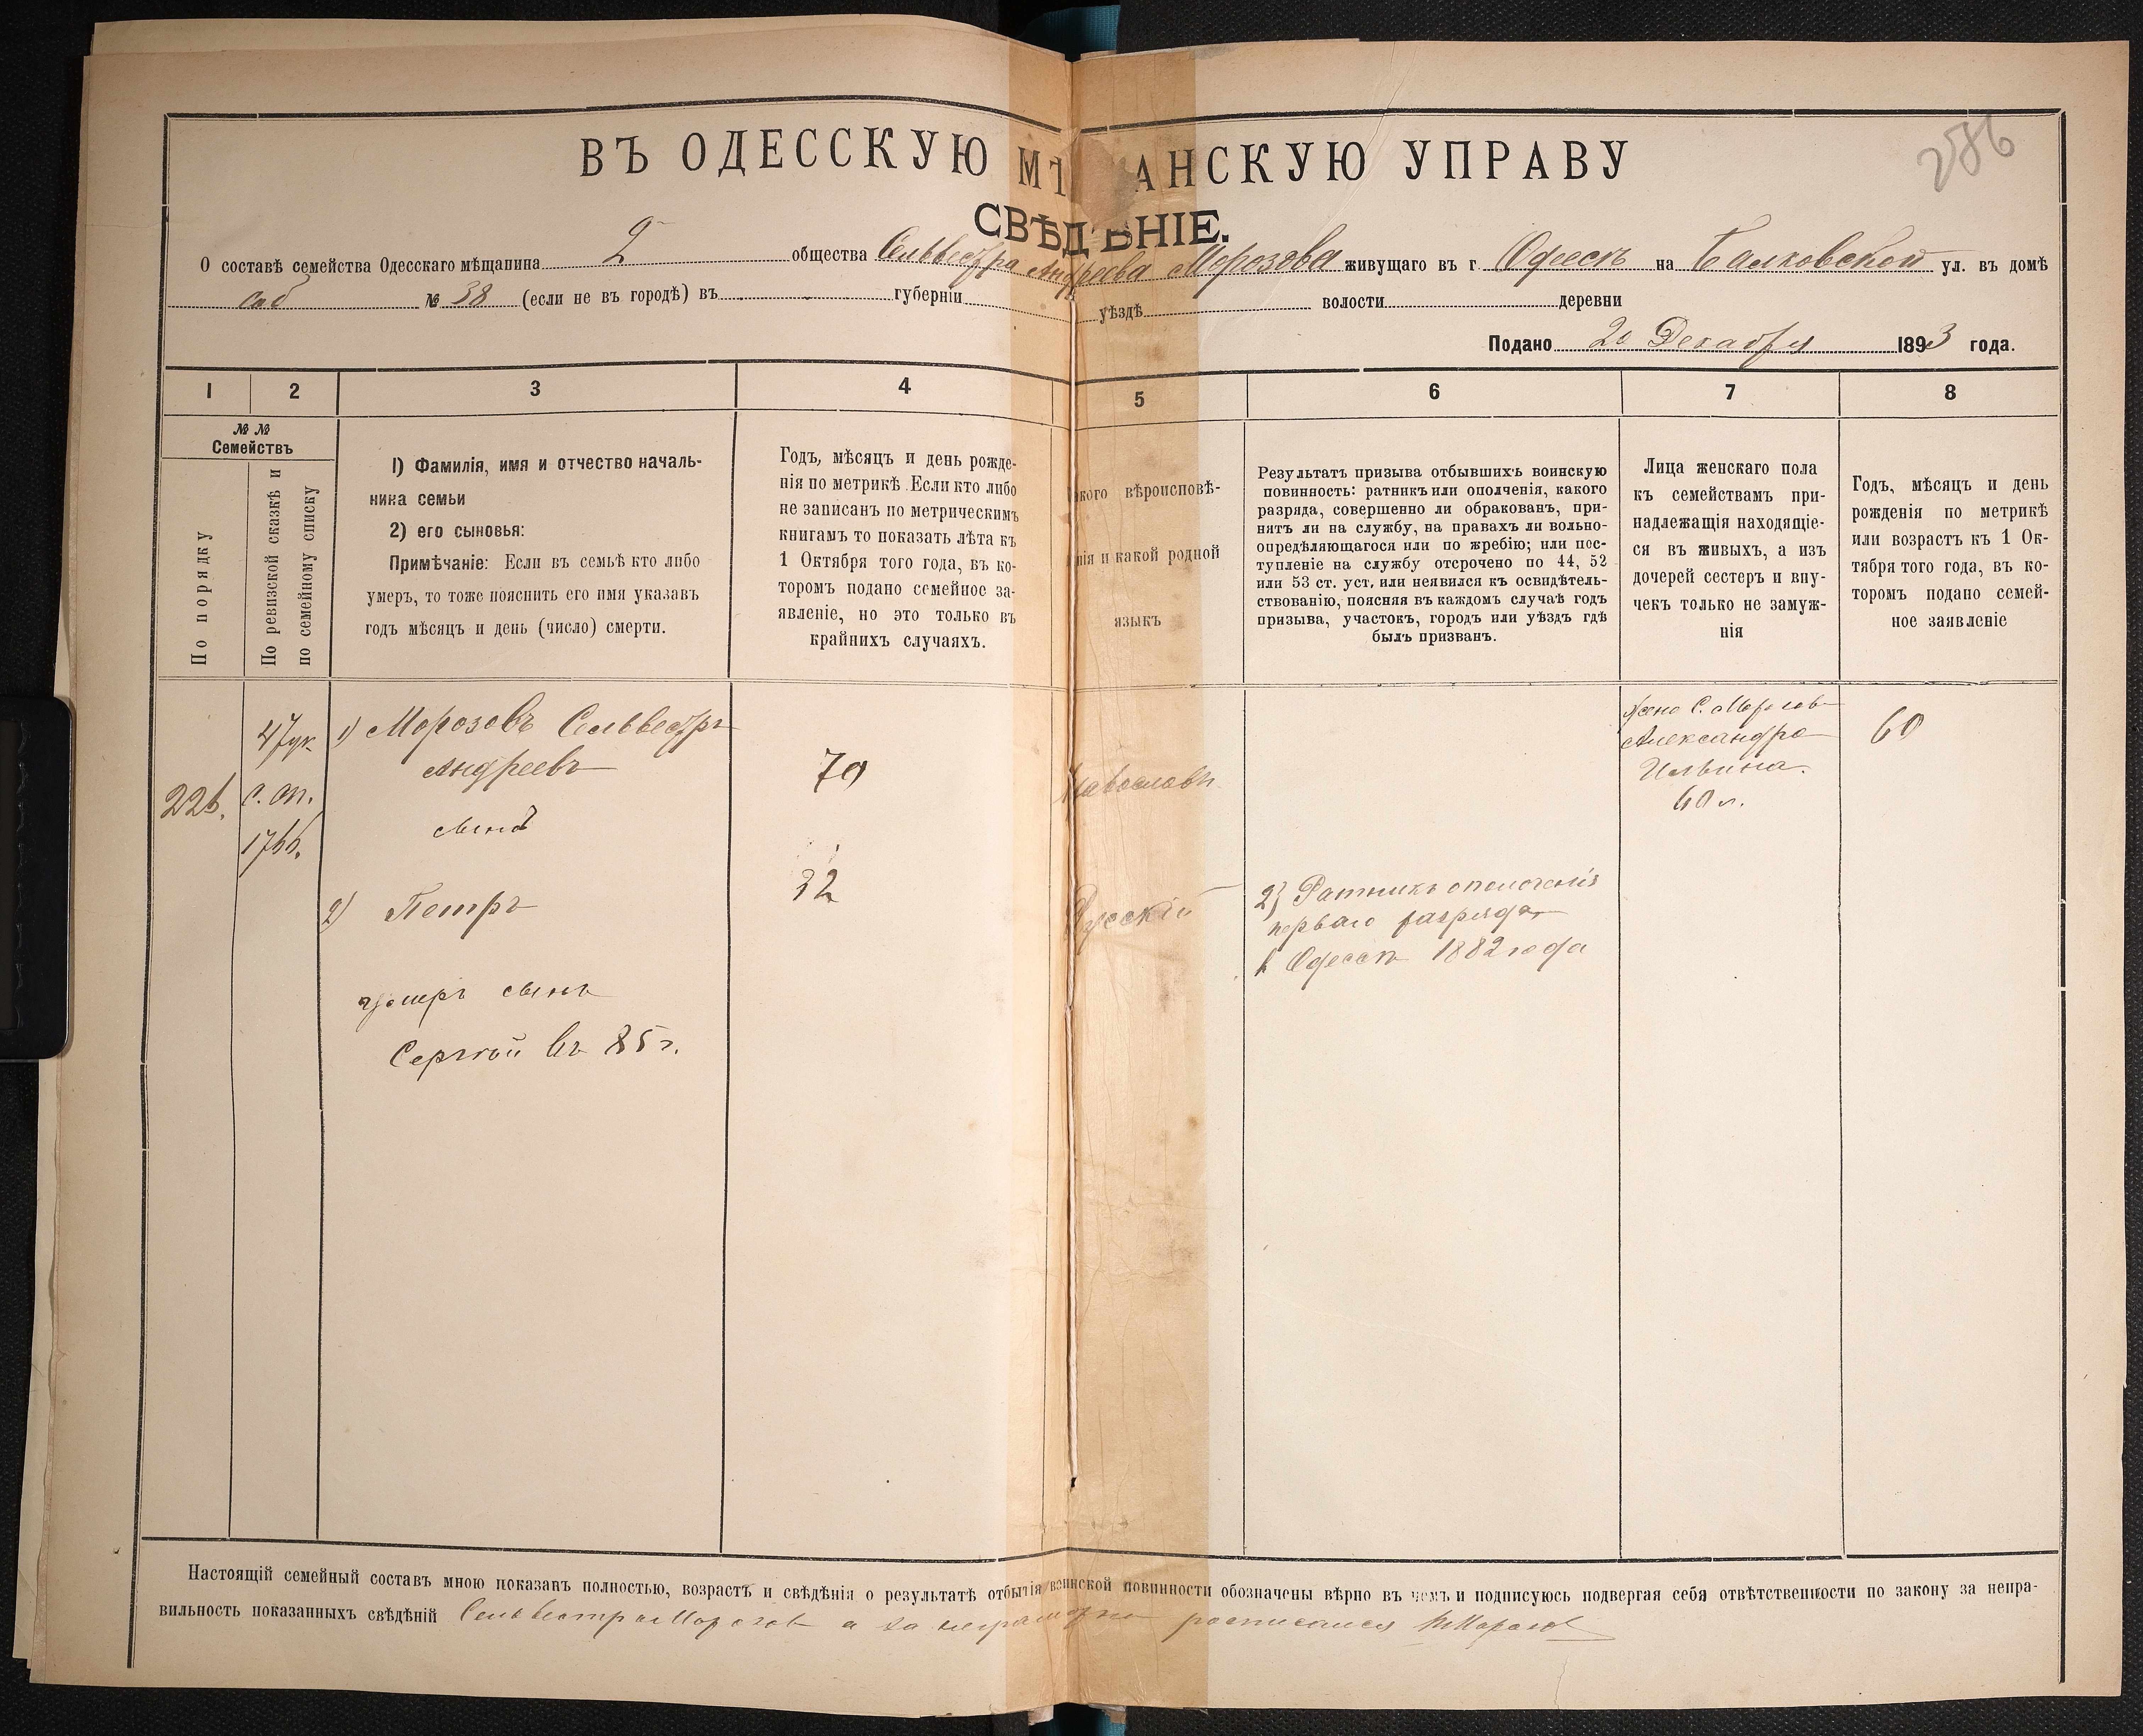 286
ВЪ ОДЕССКУЮ МѢ АНСКУЮ УПРАВУ
СВѢДѢНІЕ.
О составѣ семейства Одесскаго мѣщанина 2 общества Сельвестра Андреева Морозова живущаго въ г. Одессѣ на Балковской ул. въ домѣ
соб № 38 (если не въ городѣ) въ губерніи уѣздѣ волости деревни
Подано 20 Декабря 1893 года.
1 2 3 4 5 6 7 8
№ №
Семействъ
По порядку
По ревизской сказкѣ и
по семейному списку
1) Фамилія, имя и отчество началь-
ника семьи
2) его сыновья:
Примѣчаніе: Если въ семьѣ кто либо
умеръ, то тоже пояснить его имя указавъ
годъ мѣсяцъ и день (число) смерти.
Годъ, мѣсяцъ и день рожде-
нія по метрикѣ. Если кто либо
не записанъ по метрическимъ
книгамъ то показать лѣта къ
1 Октября того года, въ ко-
торомъ подано семейное за-
явленіе, но это только въ
крайнихъ случаяхъ.
кого вѣроисповѣ-
нія и какой родной
языкъ
Результатъ призыва отбывшихъ воинскую
повинность: ратникъ или ополченія, какого
разряда, совершенно ли обракованъ, при-
нятъ ли на службу, на правахъ ли вольно-
опредѣляющагося или по жребію; или пос-
тупленіе на службу отсрочено по 44, 52
или 53 ст. уст. или неявился къ освидѣтель-
ствованію, поясняя въ каждомъ случаѣ годъ
призыва, участокъ, городъ или уѣздъ гдѣ
былъ призванъ.
Лица женскаго пола
къ семействамъ при-
надлежащія находящіе-
ся въ живыхъ, а изъ
дочерей сестеръ и вну-
чекъ только не замуж-
нія
Годъ, мѣсяцъ и день
рожденія по метрикѣ
или возрастъ къ 1 Ок-
тября того года, въ ко-
торомъ подано семей-
ное заявленіе
226.
с. сп.
1766.
1) Морозовъ Сельвестръ
Андреевъ
70
сынъ
2) Петръ
32
умеръ сынъ
Сергѣй въ 85 г.
Православн.
Русскій
2) Ратникъ ополченія
перваго разряда
в Одессѣ 1882 года
жена С. Морозов
Александра
Ильина.
60 л.
60
Настоящій семейный составъ мною показанъ полностью, возрастъ и свѣдѣнія о результатѣ отбытія воинской повинности обозначены вѣрно въ чемъ и подписуюсь подвергая себя отвѣтственности по закону за непра-
вильность показанныхъ свѣдѣній Сельвестръ Морозов а за неграмотно росписался Морозов